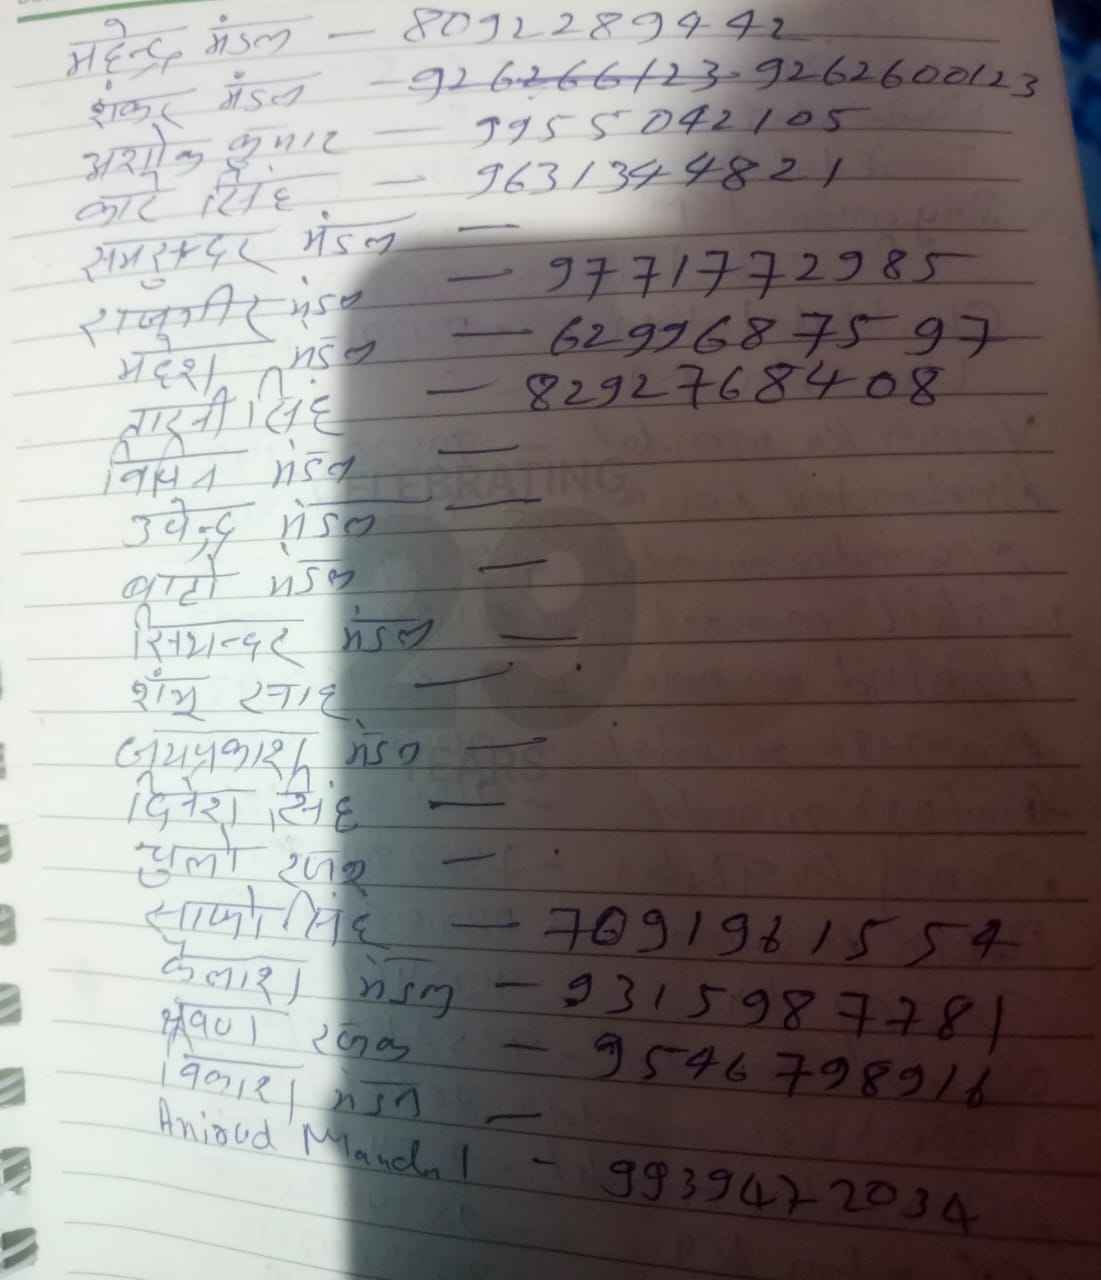 महेन्द्र मंडल — 8092289442
शंकर मंडल — 926266123 9262600123
अशोक कुमार — 9955042105
कारे सिंह — 9631344821
रामसुन्दर मंडल —
राजगीर मंडल — 9771772985
महेश मंडल — 6299687597
सिंह — 8292768408
विपिन मंडल —
उपेन्द्र मंडल —
मंडल —
मंडल —
शंभू —
जयप्रकाश मंडल —
दिनेश सिंह —
चुल्हो —
सिंह — 7091961554
कैलाश मंडल — 9315987781
श्रवण रजक — 9546798916
विकाश मंडल —
Anirud Mandal - 9939472034
CELEBRATING
29
YEARS